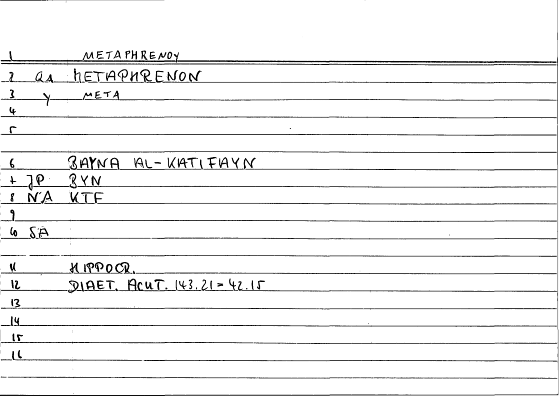 1 METAPHRENOY
2 AA METAPHRENON
3 Y META
4
5
6 BAYNA AL-KATIFAYN
7 JP BYN
8 NA KTF
9
10 SA
11 HIPPOCR.
12 DIAET. ACUT. 143.21 = 42.15
13
14
15
16